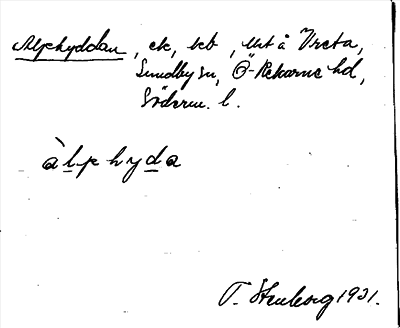 Alphyddan, ek, beb, utt å Vreta,
Sundby sn, Ö-Rekarne hd,
Söderm. l.
àlphyda
T. Stenberg 1931.